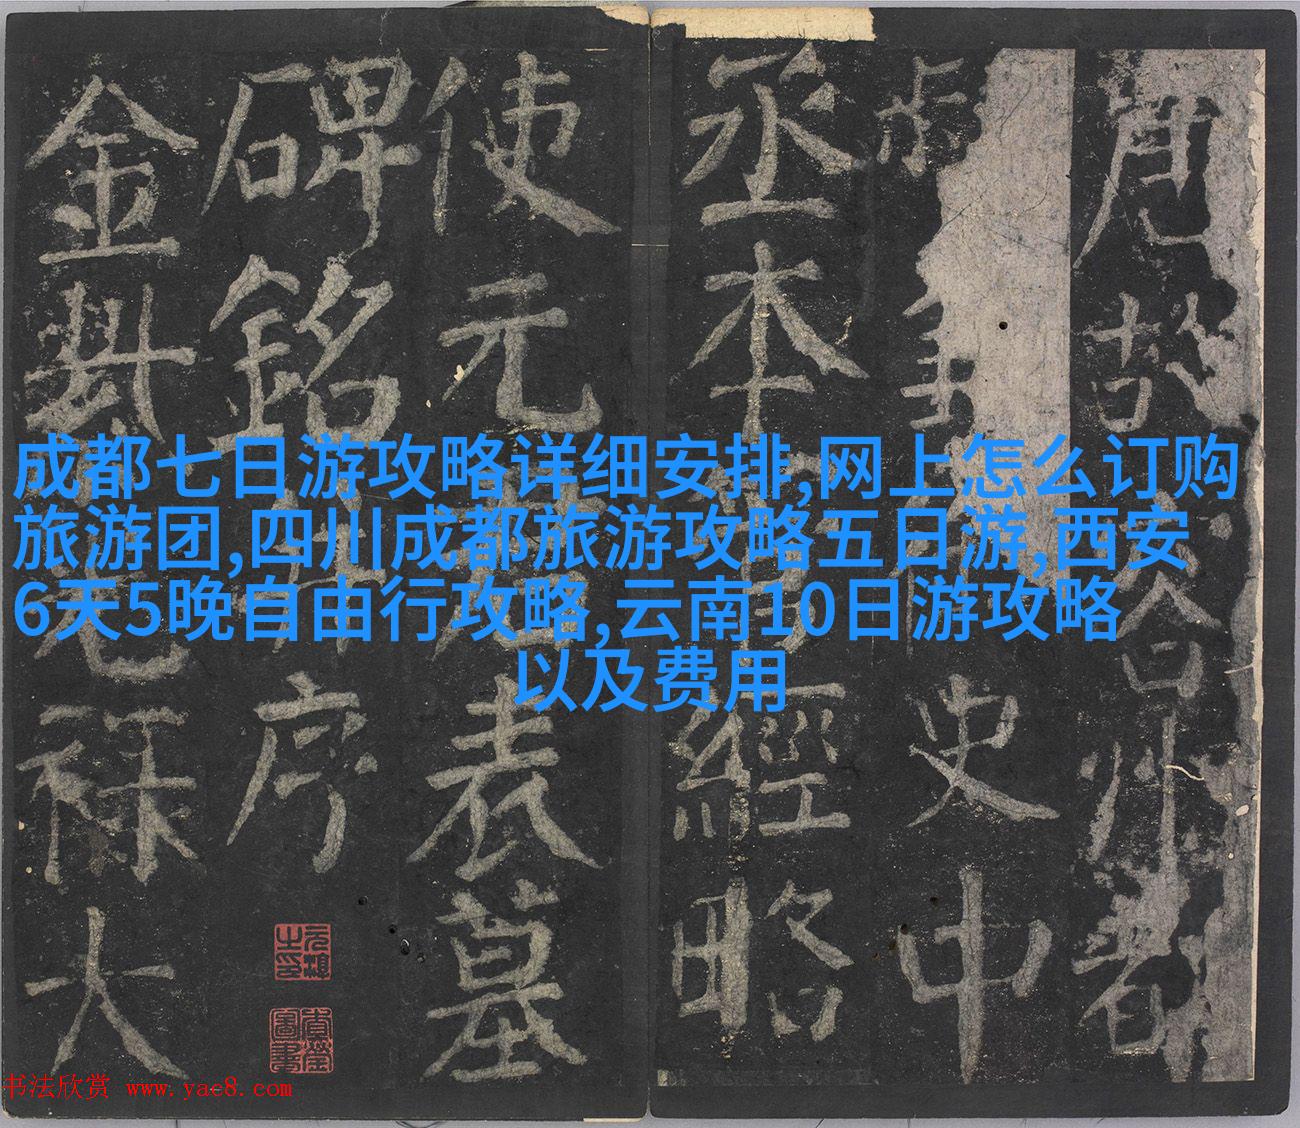 成都七日游攻略详细安排,网上怎么订购
旅游团,四川成都旅游攻略五日游,西安
6天5晚自由行攻略,云南10日游攻略
以及费用
唐故容州都
史中
丞本管經略
使元君表墓
碑銘并序
金紫光祿大
书法欣赏 www.yac8.com